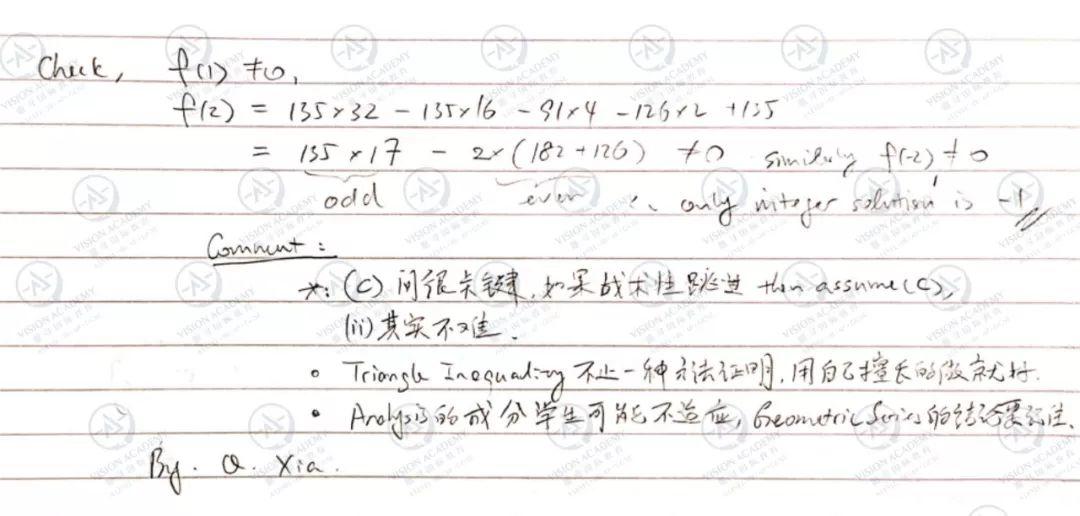 Check, f(1) ≠ 0,
f(2) = 135×32 - 135×16 - 91×4 - 126×2 + 135
= 135×17 - 2×(182+126) ≠ 0 similarly f(-2) ≠ 0
odd even ∴ only integer solution is -1
Comment:
*: (c) 问很关键,如果战术性跳过 then assume (c),
(ii) 其实不难.
• Triangle Inequality 不止一种方法证明,用自己擅长的做就好.
• Analysis的成分学生可能不适应, Geometric Series的结论要记住.
By. Q. Xia.
VISION ACADEMY